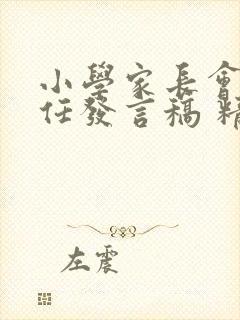 小學家長會
任發言稿 精
左震